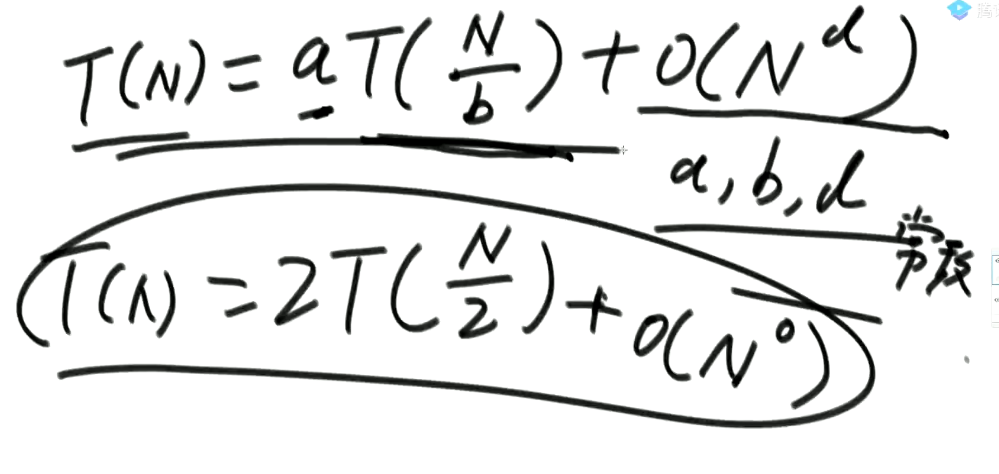 T(N) = aT(N/b) + O(N^d)
a, b, d 常数
T(N) = 2T(N/2) + O(N^0)